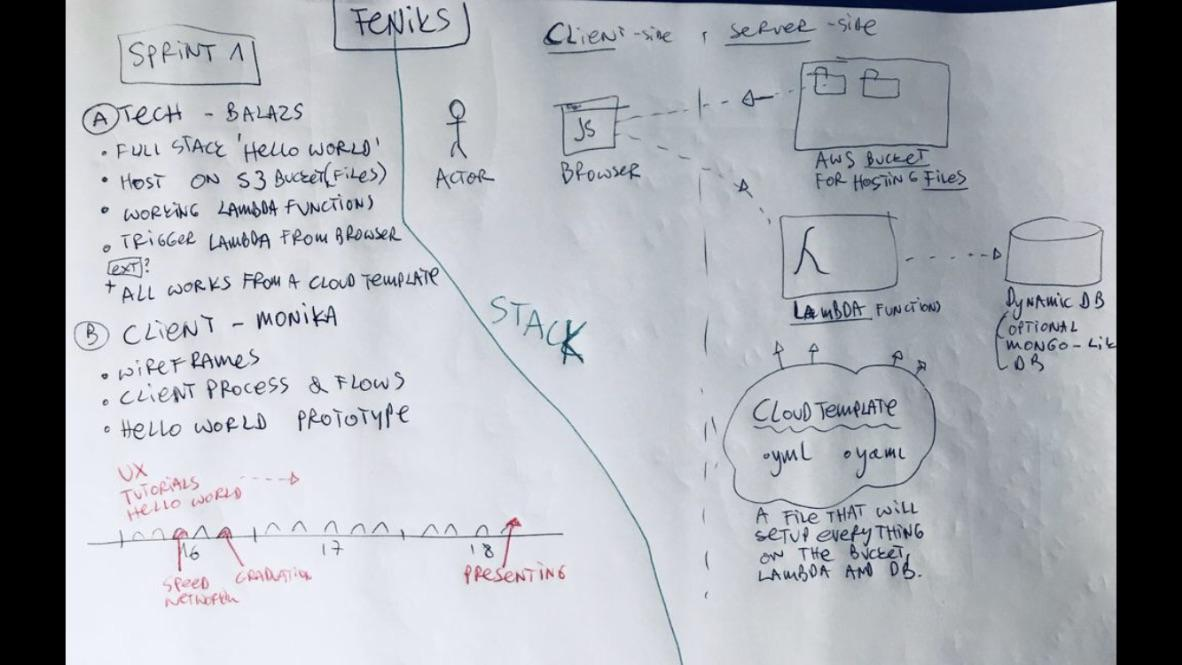 FENIKS
SPRINT 1
(A) TECH - BALAZS
• FULL STACK 'HELLO WORLD'
• HOST ON S3 BUCKET (FILES)
• WORKING LAMBDA FUNCTIONS
• TRIGGER LAMBDA FROM BROWSER
EXT?
+ ALL WORKS FROM A CLOUD TEMPLATE
(B) CLIENT - MONIKA
• WIREFRAMES
• CLIENT PROCESS & FLOWS
• HELLO WORLD PROTOTYPE
UX
TUTORIALS
HELLO WORLD
16 17 18
SPEED
GRADUATION
PRESENTING
STACK
CLIENT-SIDE SERVER-SIDE
ACTOR
JS
BROWSER
AWS BUCKET
FOR HOSTING FILES
λ
LAMBDA FUNCTION)
DYNAMIC DB
(OPTIONAL
MONGO-LIK
DB
CLOUD TEMPLATE
•yml •yaml
A FILE THAT WILL
SETUP EVERYTHING
ON THE BUCKET,
LAMBDA AND DB.